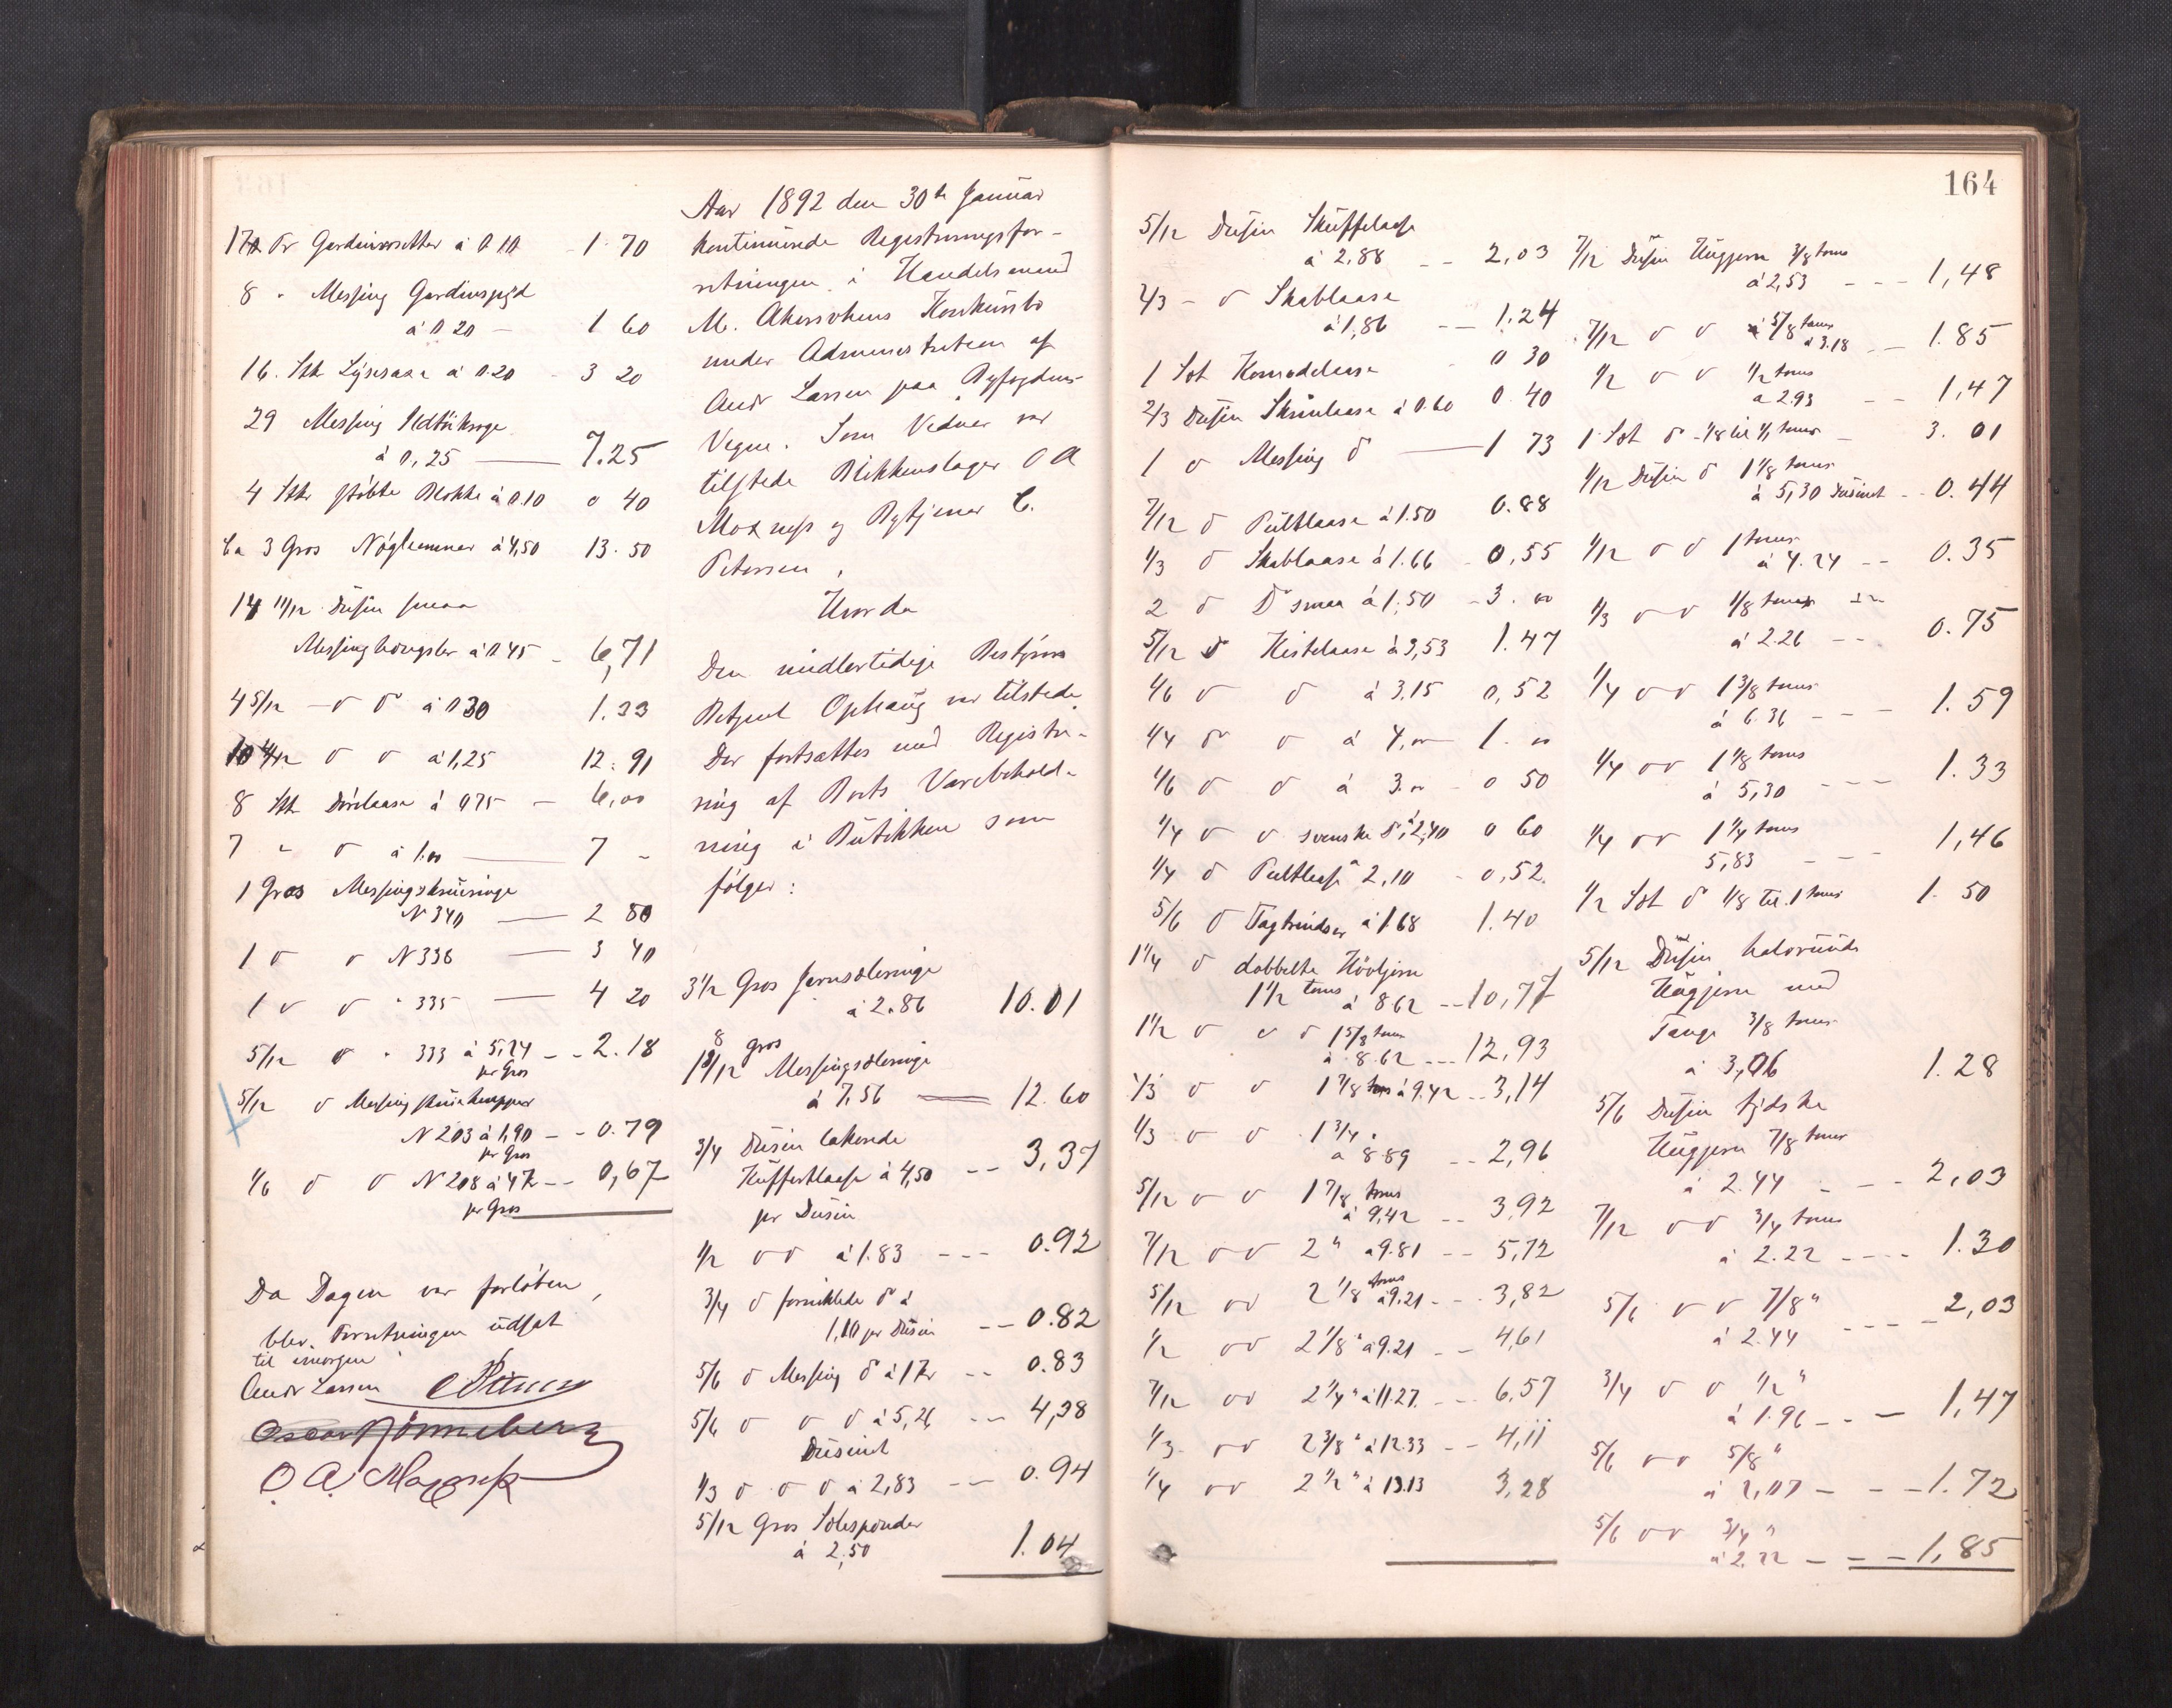 17 Pr Gardinrosetter à 0.10 - 1.70
8 " Messing Gardinspyd
à 0 20 - 1 60
16. Stk Lysesaxe à 0.20 - 3 20
29 Messing Ildtøikroge
à 0,25 — 7.25
4 Stkr støbte Blokke à 0.10 0 40
Ca 3 Gros Nøglemmer à 4,50 13.50
14 11/12 Dusin smaa
Messinghængsler à 0.45 - 6,71
4 5/12 - d d à 0 30 1.33
10 4/12 d d à 1,25 12.91
8 Stk Dørelaase à 0.75 - 6,00
7 " d à 1.00 — 7 -
1 Gros Messingskruringe
N 340 — 2 80
1 d d N 336 — 3 40
1 d d " 335 — 4 20
5/12 d " 333 à 5,24 - - 2.18
pr Gros
5/12 d Messing skueknapper
N 203 à 1,90 - - 0.79
pr Gros
1/6 d d N 208 à 4 Kr - - 0,67
pr Gros
Da Dagen var forløben,
blev Forretningen udsat
til imorgen
Andr Larsen
Oscar Rønneberg
O. A. Moxness
Aar 1892 den 30te Januar
kontinuerede Registreringsfor-
retningen i Handelsmand
M. Akerviken's Konkursbo
under Administration af
Andr Larsen paa Byfogdens
Vegne. Som Vidner var
tilstede Blikkenslager O A
Moxness og Bytjener C.
Petersen.
Hvorda
Den midlertidige Bestyrer
Betjent Ophaug var tilstede.
Der fortsattes med Registre-
ring af Boets Varebehold-
ning i Butikken som
følger:
3 1/2 Gros Jernsøleringe
à 2.86 10.01
8 gros
1 8/12 Messingsøleringe
à 7.56 — 12.60
3/4 Dusin lakerede
Kuffertlaase à 4,50 - - 3,37
pr Dusin
1/2 d d à 1.83 - - - 0.92
3/4 d forniklede d à
1,10 pr Dusin - - 0.82
5/6 d Messing d à 1 Kr - - 0.83
5/6 d d d à 5,26 - - 4,38
Dusinet
1/3 d d d à 2,83 - - 0.94
5/12 Gros Sølespænder
à 2,50 1.04
164
5/12 Dusin Skuffelaase
à 2,88 - - 2,03
2/3 - d Skablaase
à 1,86 - - 1.24
1 Sæt Komodelaase - 0 30
2/3 Dusin Skrinlaase à 0.60 0.40
1 d Messing d — 1 73
7/12 d Pultlaase à 1.50 0.88
1/3 d Skablaase à 1.66 - 0,55
2 d Do smaa à 1,50 - 3.00
5/12 d Kistelaase à 3,53 1.47
1/6 d d à 3.15 0,52
1/4 d d à 4,00 1.00
1/6 d d à 3.00 - 0 50
1/4 d d svenske d à 2,40 0 60
1/4 d Pultlaase à 2,10 - 0,52
5/6 d Tagtrindser à 1.68 1.40
1 1/4 d dobbelte Høvljern
1 1/2 toms à 8.62 - - 10,77
1 1/2 d d d 1 5/8 toms
à 8.62 - - - 12,93
1/3 d d 1 7/8 toms à 9.42 - - 3,14
1/3 d d 1 3/4 "
à 8.89 - - 2,96
5/12 d d 1 7/8 toms
à 9,42 - - 3,92
7/12 d d 2 " à 9.81 - - 5,72
5/12 d d 2 1/8 toms à 9.21 - - 3,82
1/2 d d 2 1/8 " à 9.21 - - 4,61
7/12 d d 2 1/4 " à 11.27 - - - 6,57
1/3 d d 2 3/8 " à 12.33 - - 4,11
1/4 d d 2 1/2 " à 13.13 3,28
7/12 Dusin Hugjern 3/8 toms
à 2,53 - - - 1,48
7/12 d d 5/8 toms
à 3.18 - - 1.85
1/2 d d 1/2 toms
à 2.93 - - 1,47
1 Sæt d - 1/8 til 1/1 toms - 3.01
1/12 Dusin d 1 1/8 toms
à 5,30 Dusinet - - 0.44
1/12 d d 1 toms
à 4.24 - - 0.35
1/3 d d 1/8 toms
à 2.26 - - 0.75
1/4 d d 1 3/8 toms
à 6.36 - - - 1.59
1/4 d d 1 1/8 toms
à 5,30 - - - 1.33
1/4 d d 1 1/4 toms
5,83 - - - 1,46
1/2 Sæt d 1/8 til 1 toms 1.50
5/12 Dusin halvrunde
Hugjern med
Tange 3/8 toms
à 3,06 1.28
5/6 Dusin tydske
Hugjern 7/8 toms
à 2.44 - - - 2,03
7/12 d d 3/4 toms
à 2.22 - - - - 1.30
5/6 d d 7/8 "
à 2.44 - - - - 2,03
3/4 d d 1/2 "
à 1.96 - - - 1,47
5/6 d d 5/8 "
à 2,07 - - - 1.72
5/6 d d 3/4 "
à 2.22 - - - 1,85